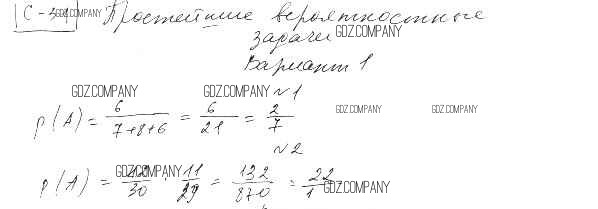 С-34 GDZ.COMPANY Простейшие вероятностные
задачи GDZ.COMPANY
Вариант 1
GDZ.COMPANY GDZ.COMPANY №1
P(A) = 6/(7+8+6) = 6/21 = 2/7 GDZ.COMPANY GDZ.COMPANY
№2
GDZ.COMPANY
P(A) = /30 · 11/29 = 132/870 = 22/1 GDZ.COMPANY